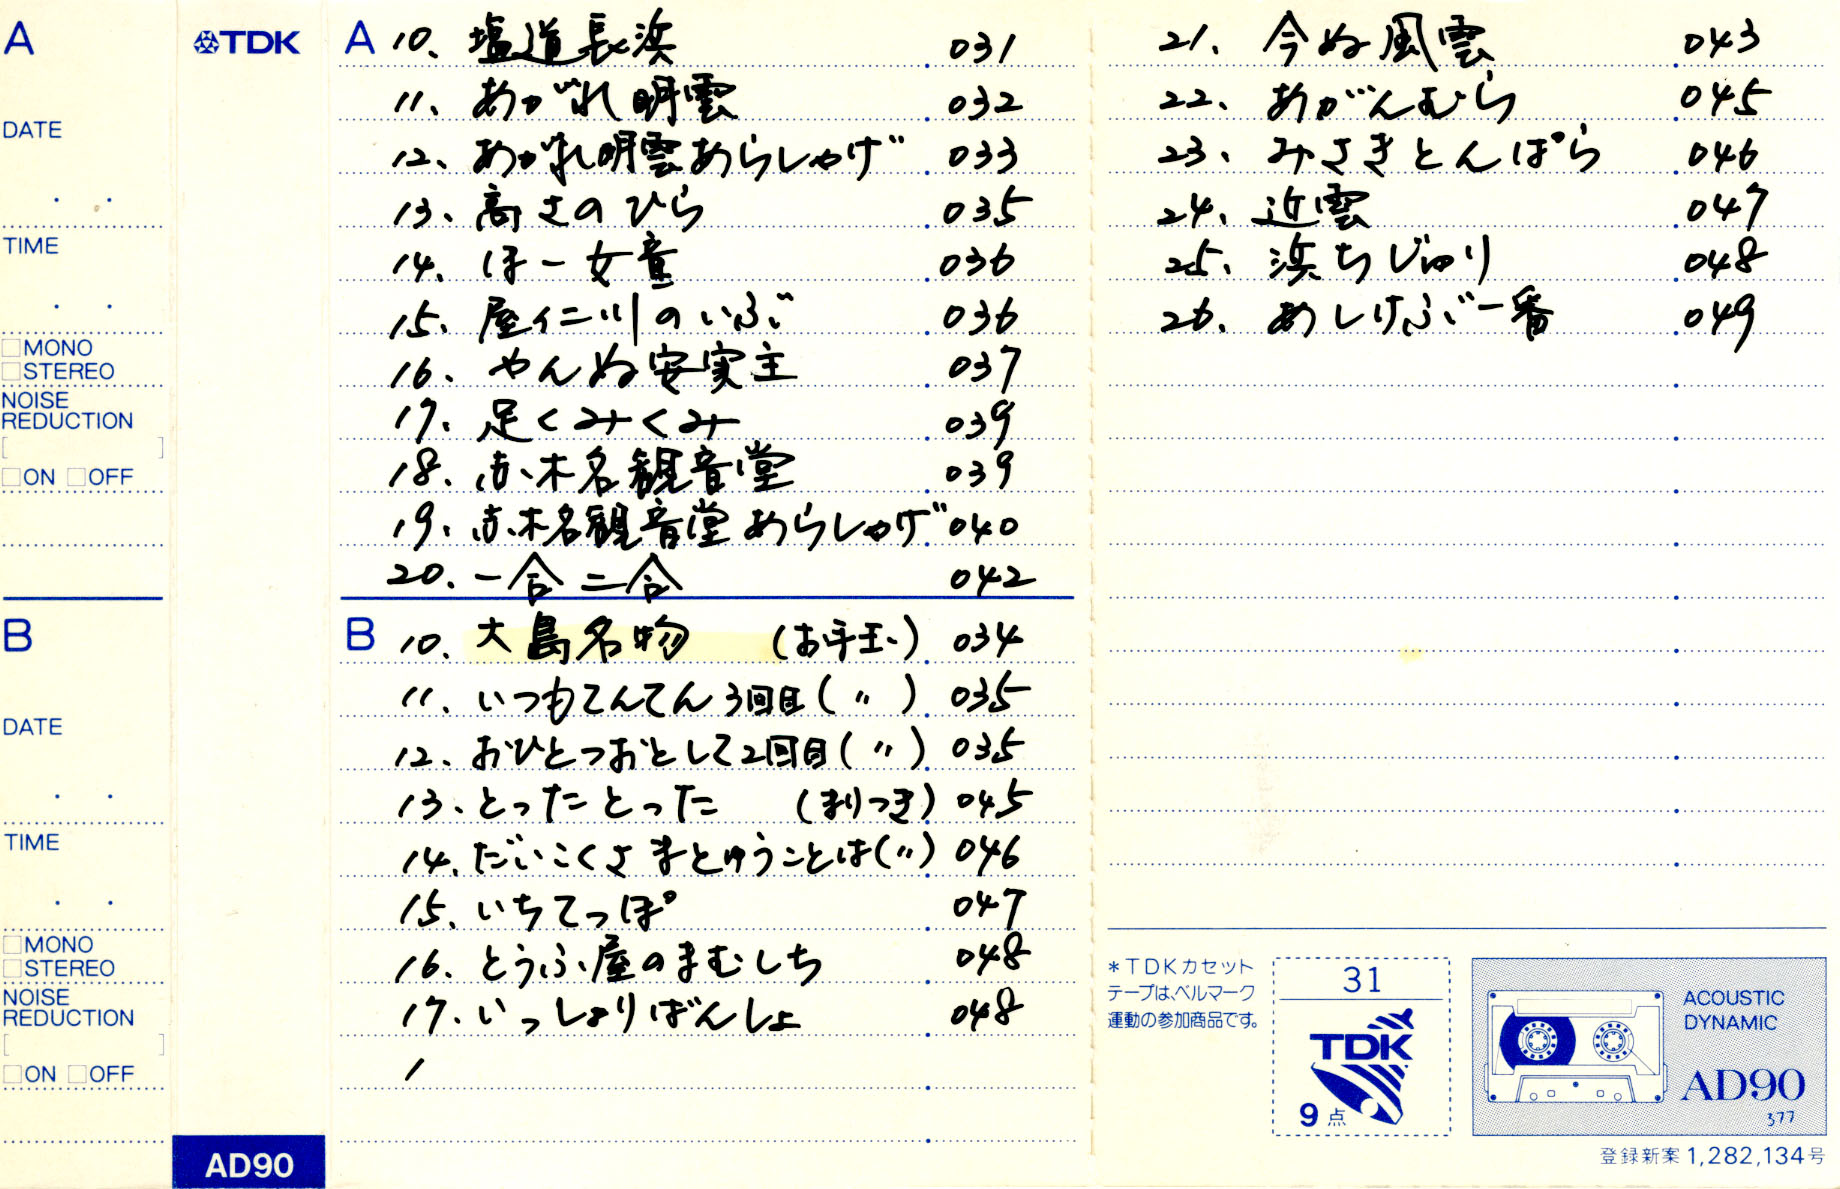 A
DATE
. .
TIME
. .
□MONO
□STEREO
NOISE
REDUCTION
[ ]
□ON □OFF
B
DATE
. .
TIME
. .
□MONO
□STEREO
NOISE
REDUCTION
[ ]
□ON □OFF
TDK
AD90
A
10. 塩道長浜 031
11. あがれ明雲 032
12. あがれ明雲あらしゃげ 033
13. 高さのひら 035
14. ほー女童 036
15. 屋仁川のいぶ 036
16. やんぬ安実主 037
17. 足くみくみ 039
18. 赤木名観音堂 039
19. 赤木名観音堂あらしゃげ 040
20. 一合二合 042
B
10. 大島名物 (お手玉) 034
11. いつもてんてん3回目(〃) 035
12. おひとつおとして2回目(〃) 035
13. とったとった (まりつき) 045
14. だいこくさまとゆうことは(〃) 046
15. いちてっぽ 047
16. とうふ屋のまむしち 048
17. いっしょりばんしょ 048
1
21. 今ぬ風雲 043
22. あがんむら 045
23. みさきとんばら 046
24. 近雲 047
25. 浜ちじゅり 048
26. あしけぶ一番 049
*TDKカセット
テープは、ベルマーク
運動の参加商品です。
31
TDK
9点
ACOUSTIC
DYNAMIC
AD90
377
登録新案1,282,134号